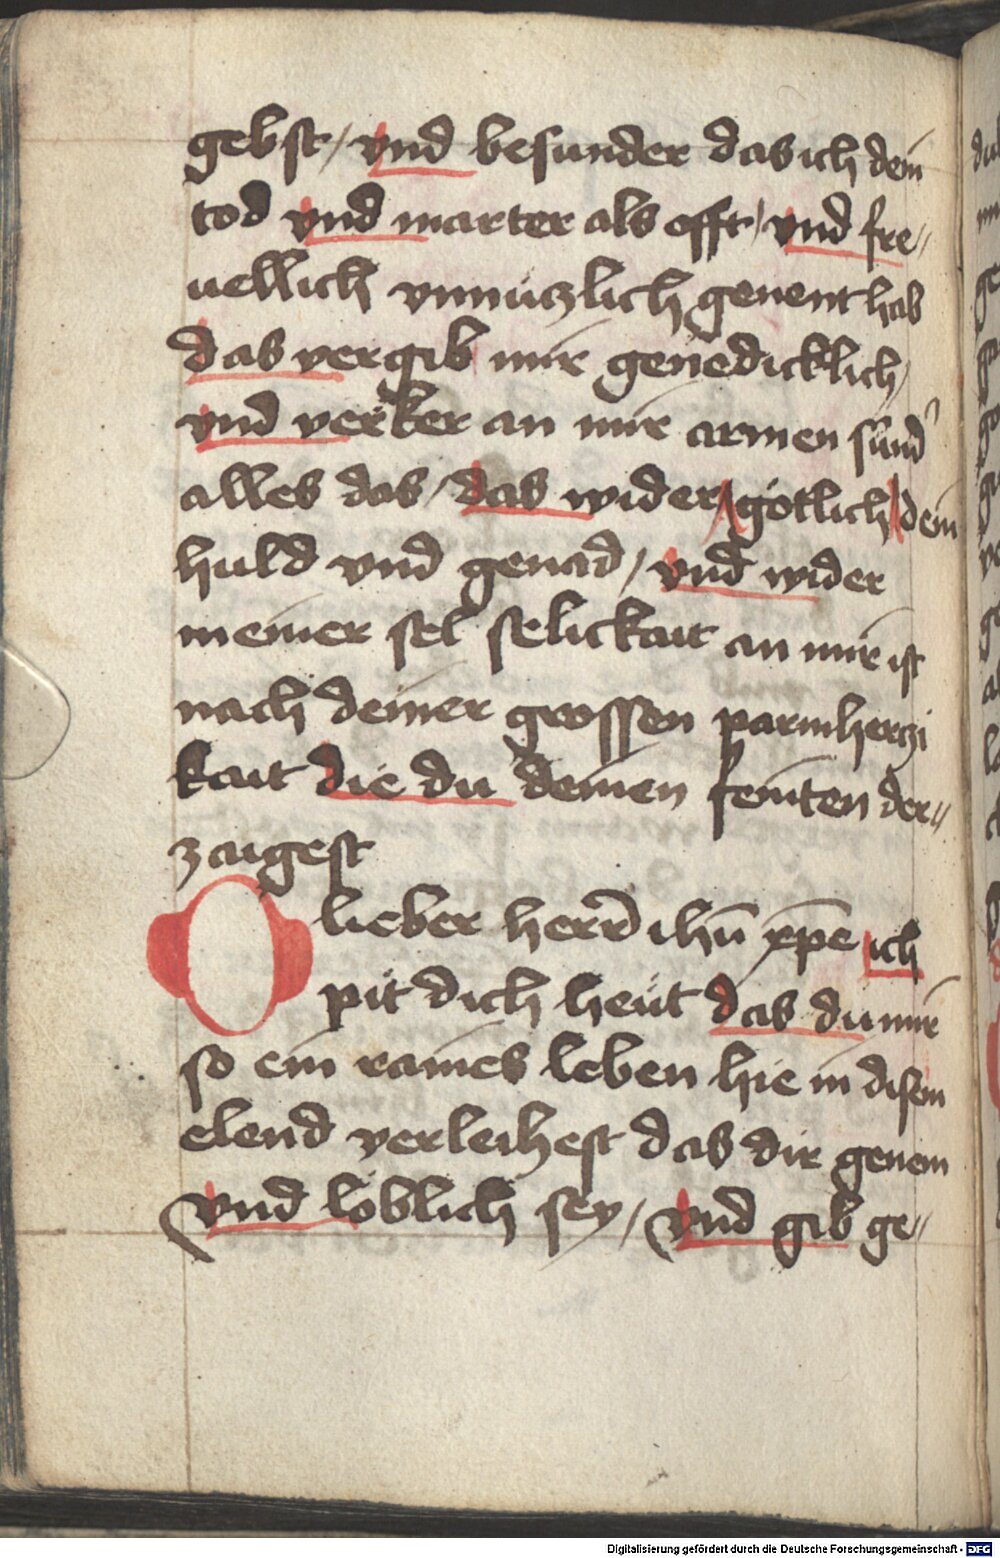 gebst / vnd besunder das ich dein
tod vnd marter als offt / vnd fre〃
uellich vnnüczlich genent hab
das vergib mir genedicklich /
vnd verker an mir armen sünd'
alles das / das wider götlich dein
huld vnd genad / vnd wider
meiner sel selickait an mir ist
nach deiner grossen parmherczi
kait die du deinen feinten der〃
zaigest
O lieber herr ihū xpe ich
pit dich heüt das du mir
so ein raines leben hie in disem
elend verleihest das dir genem
vnd löblich sey / vnd gib ge〃
Digitalisierung gefördert durch die Deutsche Forschungsgemeinschaft - DFG